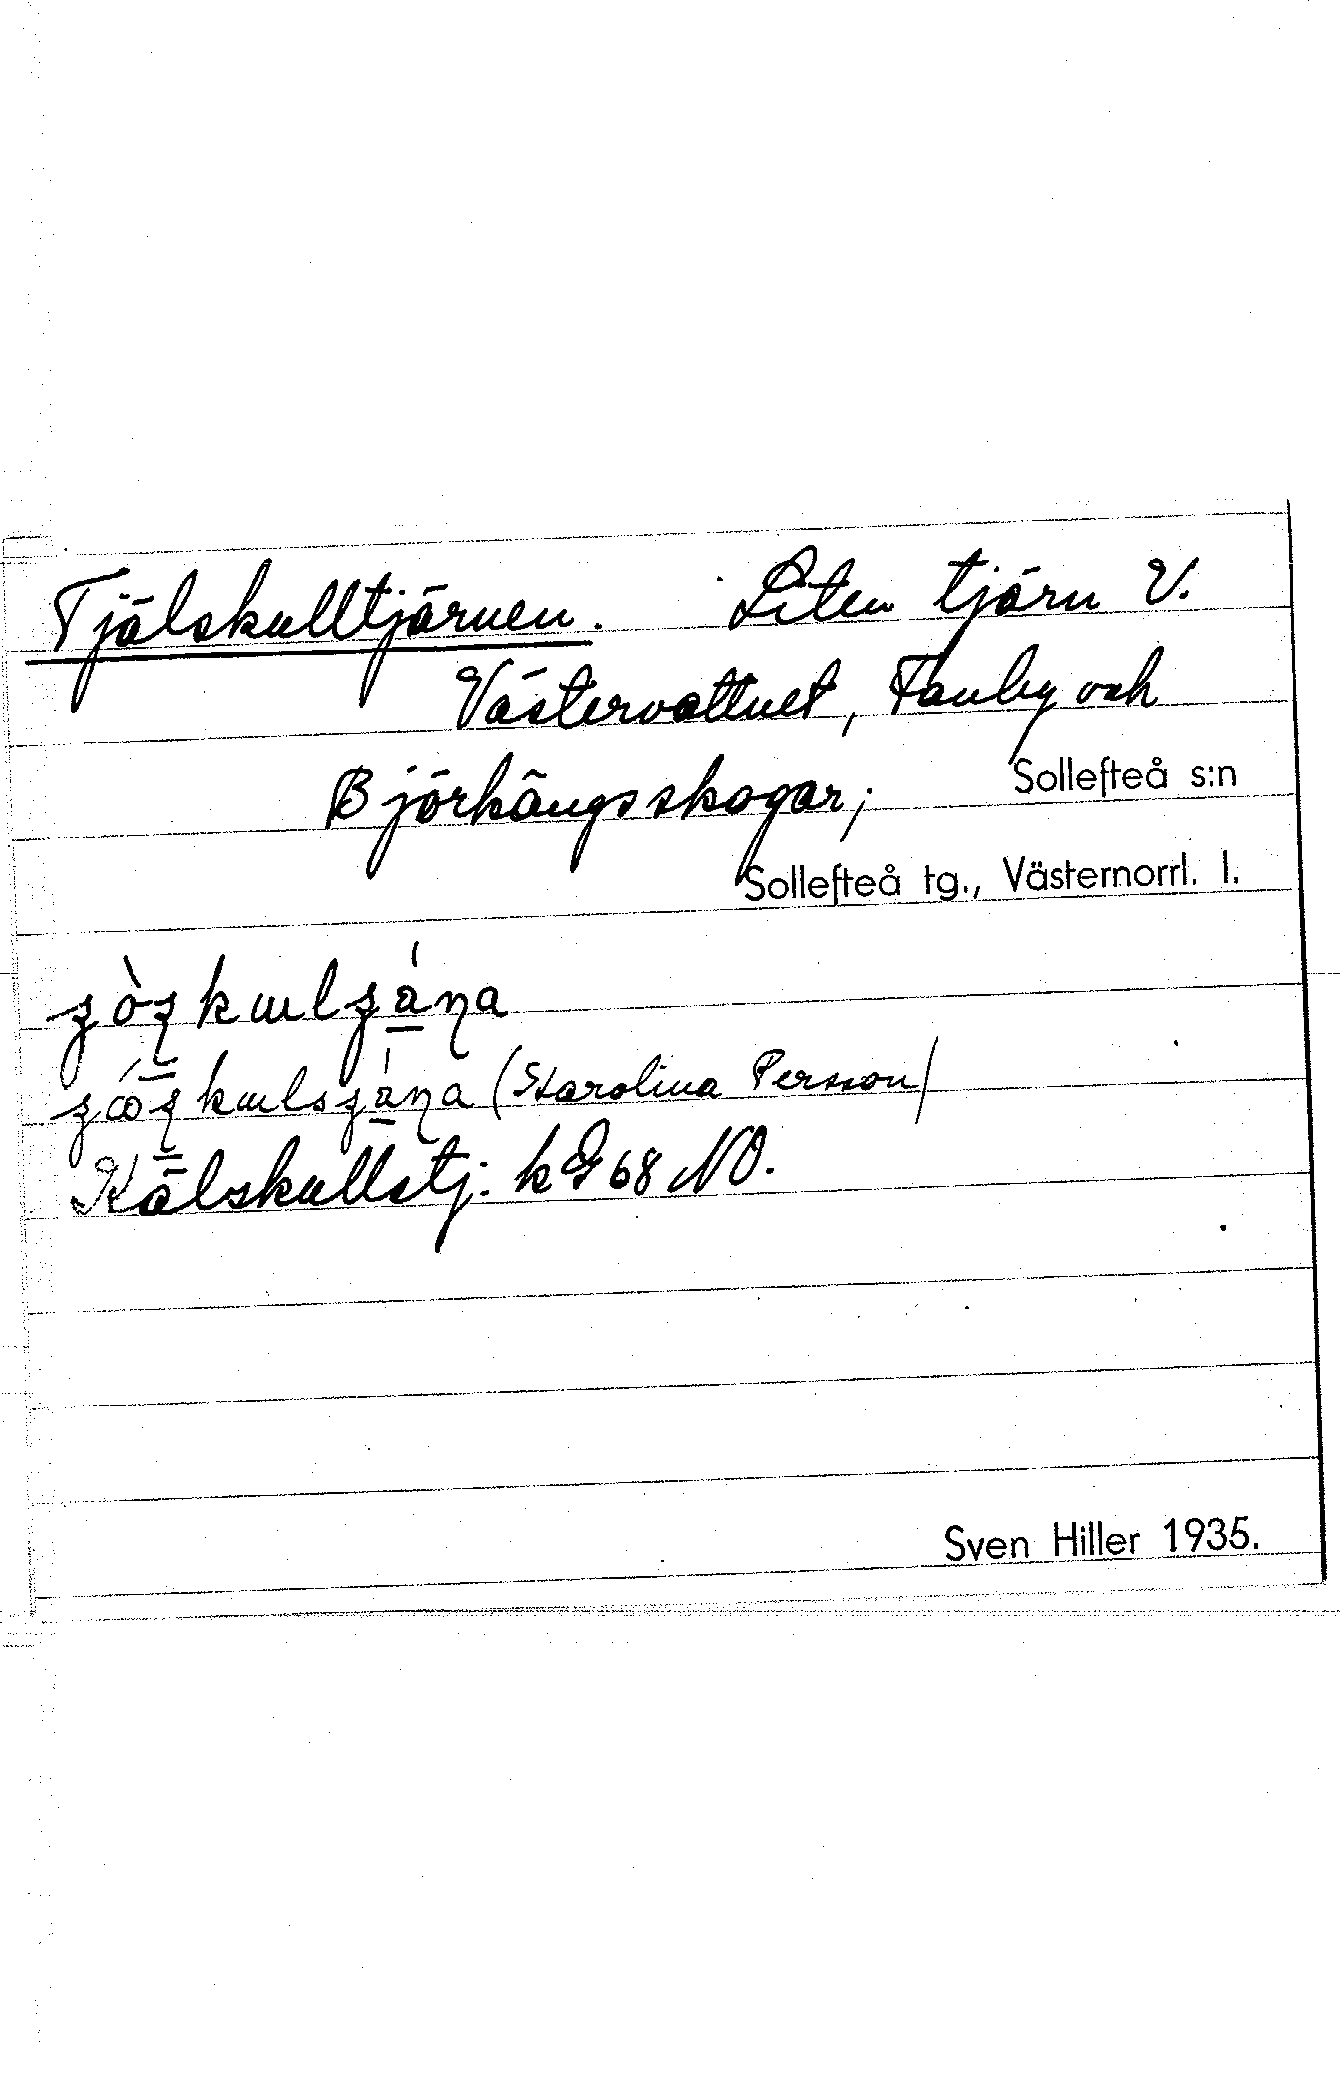 Tjälskulltjärnen. Liten tjärn V.
Västervattnet, Tanby och
Björkängsskogar; Sollefteå s:n
Sollefteå tg., Västernorrl. l.
(Karolina Persson)
Kälskullstj. kG 68 NO.
Sven Hiller 1935.